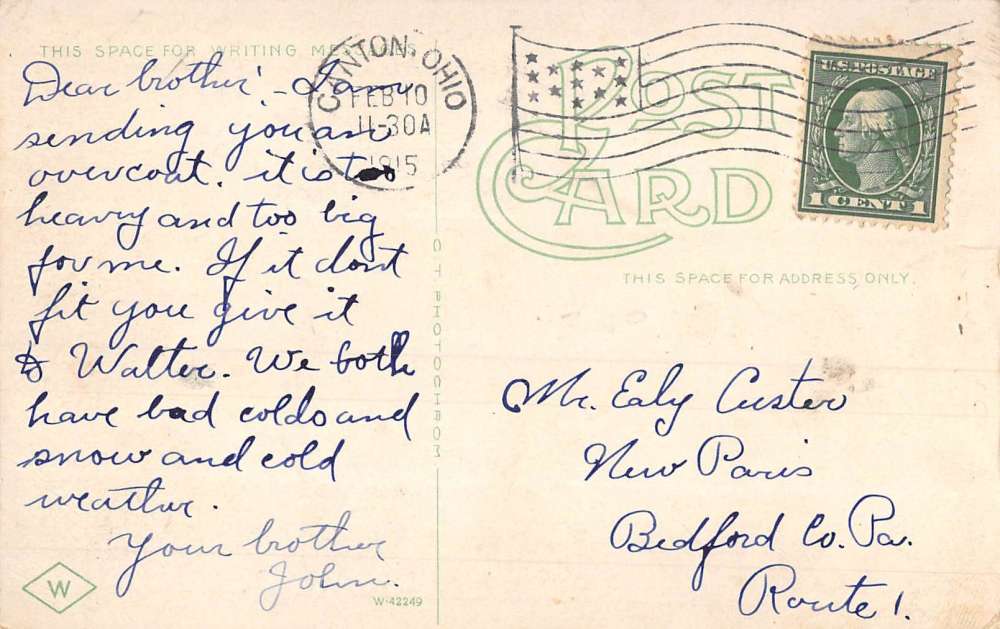 THIS SPACE FOR WRITING MESSAGES
Dear brother, - I am
sending you an
overcoat. it is too
heavy and too big
for me. If it dont
fit you give it
to Walter. We both
have bad colds and
snow and cold
weather.
Your brother
John.
W
W-42249
C T PHOTOCHROM
CANTON, OHIO
FEB 10
11-30A
1915
POST
CARD
U.S. POSTAGE
1 CENT 1
THIS SPACE FOR ADDRESS ONLY.
Mr. Ealy Custer
New Paris
Bedford Co. Pa.
Route 1.